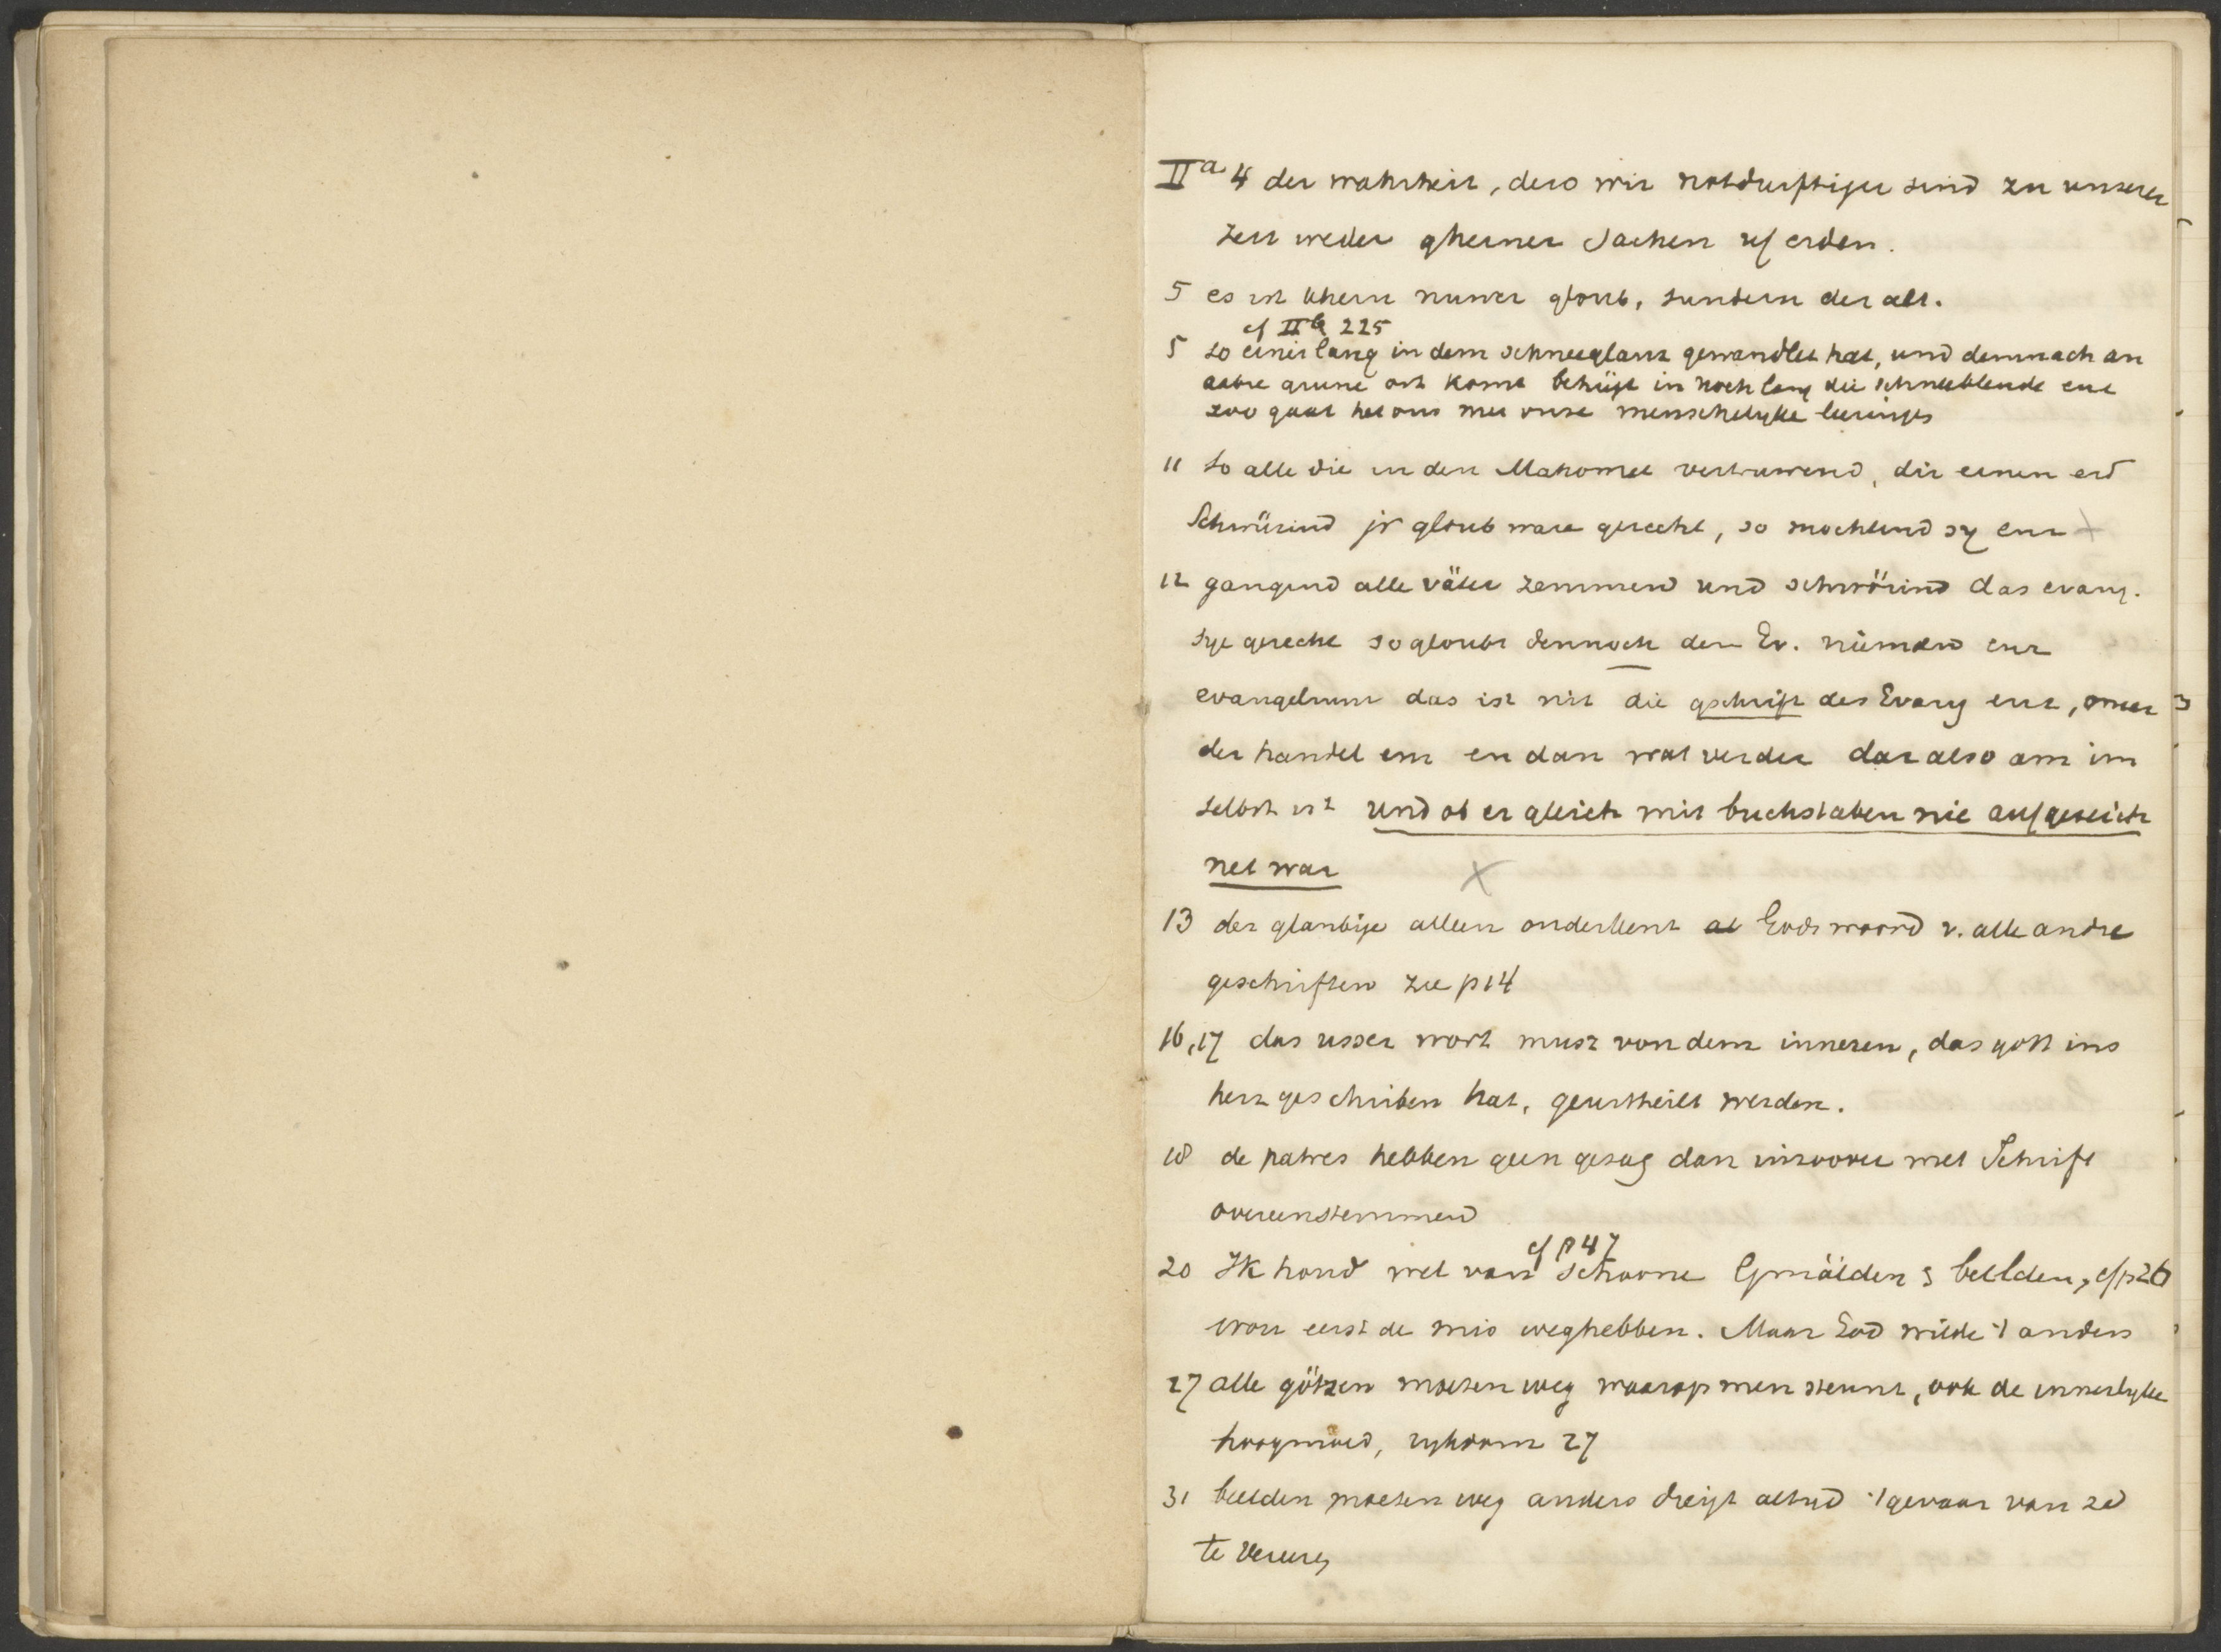 IIa 4 der wahrheit, dero wir notdurftiger sind zu unserer
zeit weder gheiner sachen uf erden.
5 es ist khein nuwer gloub, sundern der alt.
cf IIb 225
5 so einer lang in dem schneeglanz gewandlet hat, und demnach an
andre grune ort komt behügt in noch lang die schneeblende enz
zoo gaat het ons met onze menschelyke leeringes
11 so alle die in den Mahomet vertruwend, dir einen eid
Schwürind jr gloub ware gerecht, so mochtend sy enz
12 gangind alle väter zemmen und schwörind das evang.
sye gerecht so gloubt dennoch dem Ev. nieman enz
evangelium das ist nit die gschrift des Evang enz, mer
der handel enz en dan wat verder dar also am im
selbst ist und ob er gleich mit buchstaben nie aufgezeich
net war
13 der glaubige alleen onderkent al Gods woord v. alle andre
geschriften zie p14
16,17 das usser wort musz von dem inneren, das gott ins
herz geschriben hat, geurtheilt werden.
18 de patres hebben geen gezag dan inzoover met Schrift
overeenstemmend
cf p 47
20 Ik houd wel van schoone Gmälden & beelden, cf p26
wou eerst de mis weghebben. Maar God wilde 't anders
27 alle götzen moeten weg waarop men steunt, ook de innerlyke
hoogmoed, rykdom 27
31 beelden moeten weg anders dreigt altyd 't gevaar van ze
te vereren